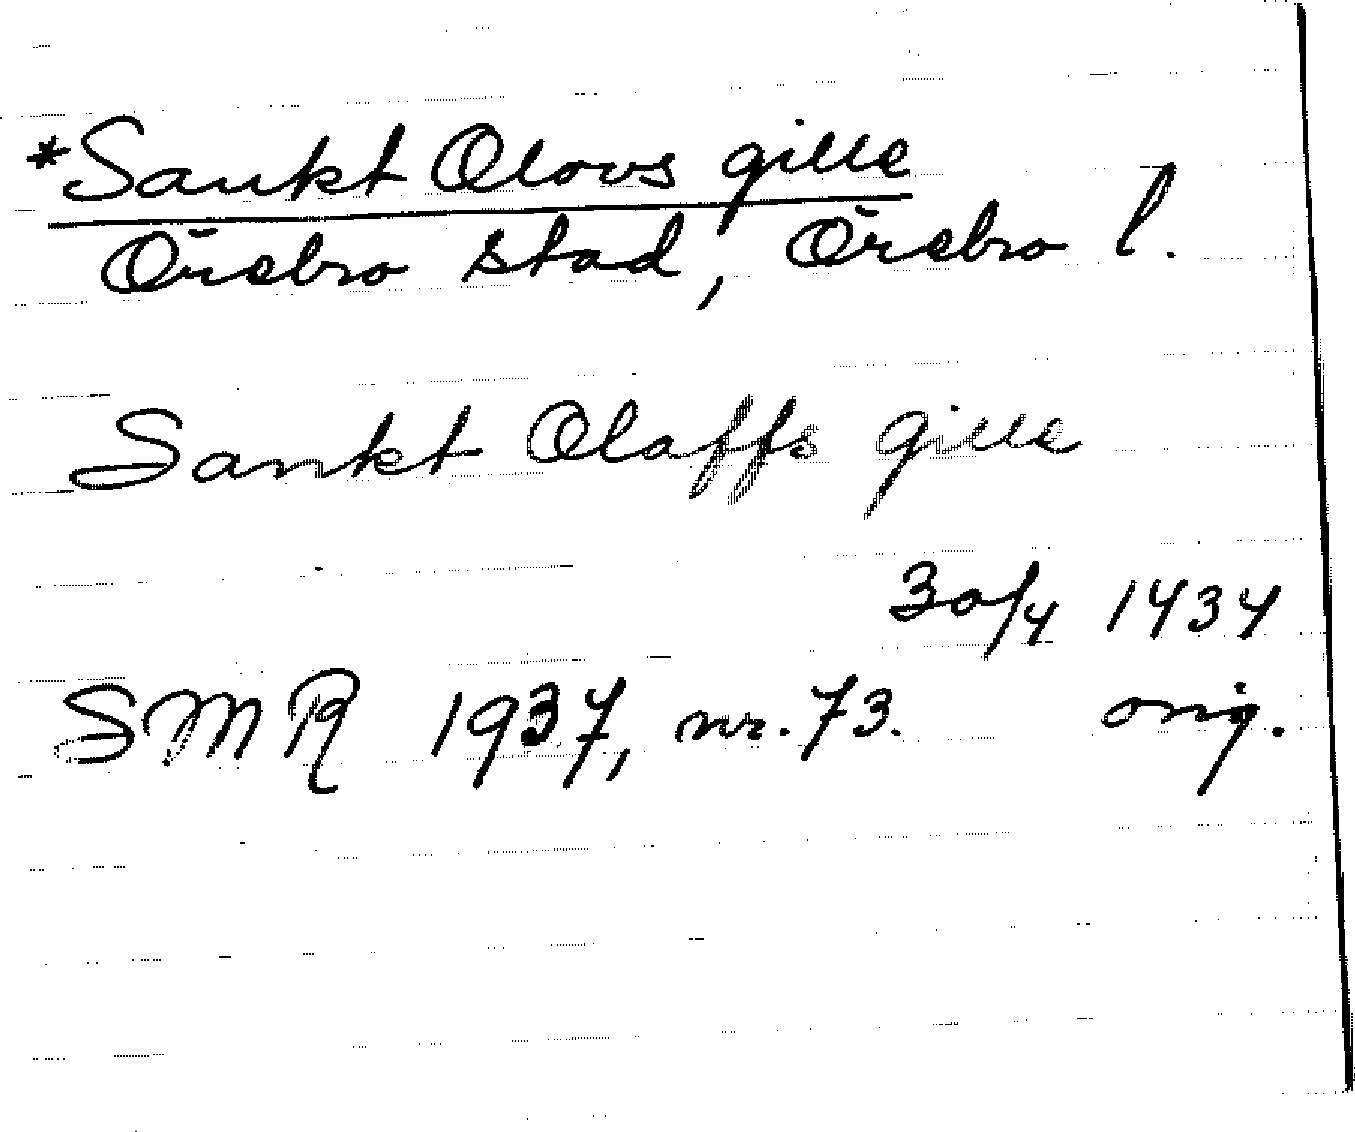 *Sankt Olovs gille
Örebro stad, Örebro l.
Sankt Olaffs gille
30/4 1434
SMR 1937, nr. 73. orig.